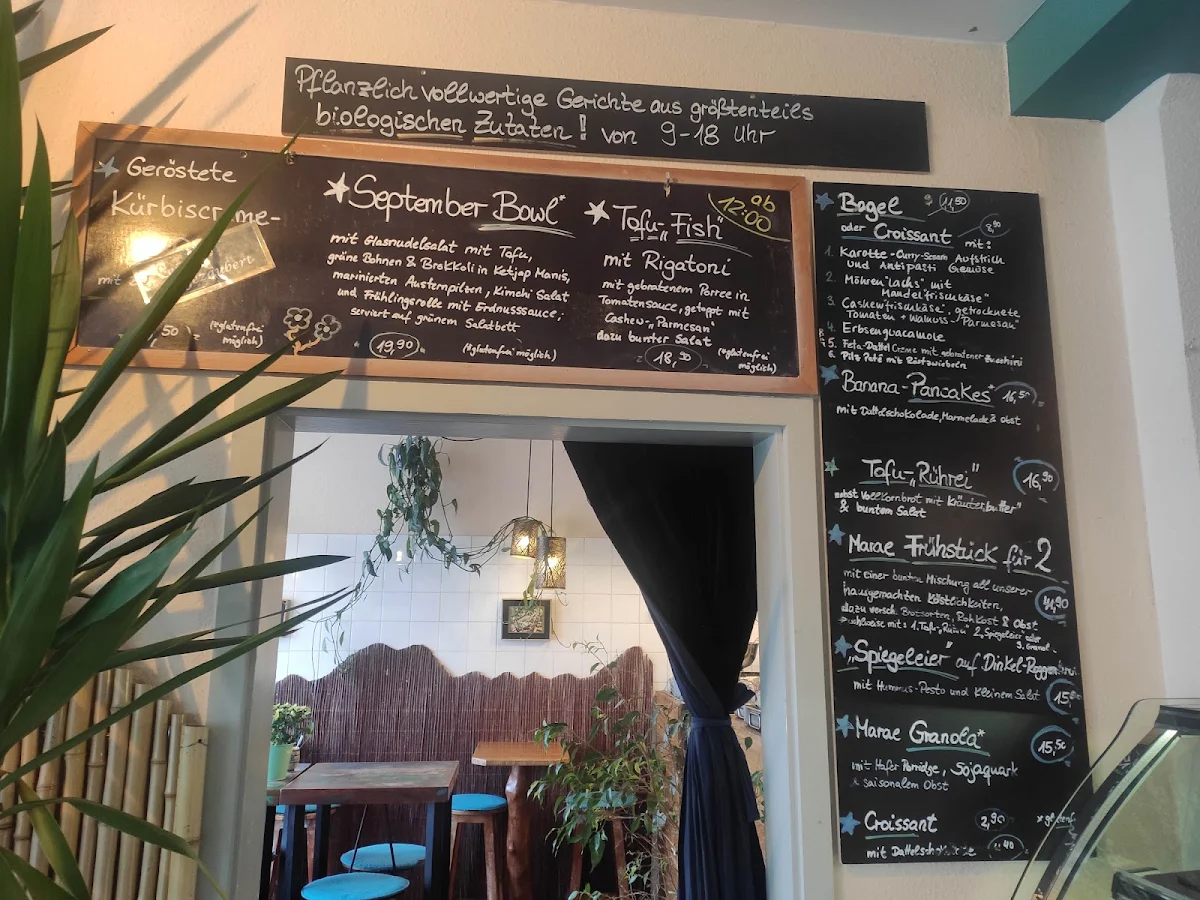 Pflanzlich vollwertige Gerichte aus größtenteils
biologischen Zutaten! von 9-18 Uhr
Geröstete
Kürbiscreme-
mit
(*glutenfrei
möglich)
September Bowl*
mit Glasnudelsalat mit Tofu,
grüne Bohnen & Brokkoli in Ketjap Manis,
marinierten Austernpilzen, Kimchi Salat
und Frühlingsrolle mit Erdnusssauce;
serviert auf grünem Salatbett
19,90
(*glutenfrei möglich)
ab
12:00
Tofu-„Fish"
mit Rigatoni
mit gebratenem Porree in
Tomatensauce, getoppt mit
Cashew-„Parmesan"
dazu bunter Salat
18,50
(*glutenfrei
möglich)
Bagel 11,50
oder Croissant mit: 8,90
1. Karotte-Curry-Sesam Aufstrich
und Antipasti Gemüse
2. Möhren"lachs" mit
Mandelfrischkäse"
3. Cashewfrischkäse, getrocknete
Tomaten + Walnuss-"Parmesan"
4. Erbsenguacamole
5. Feta-Dattel Creme mit gebratener Zucchini
6. Pilz Paté mit Röstzwiebeln
Banana-Pancakes* 16,50
mit Dattelschokolade, Marmelade & Obst
Tofu-„Rührei" 16,90
nebst Vollkornbrot mit Kräuter„butter"
& buntem Salat
Marae Frühstück für 2
mit einer bunten Mischung all unserer
hausgemachten Köstlichkeiten,
dazu versch. Brotsorten, Rohkost & Obst
mit: 1. Tofu„Rührei" 2. „Spiegeleier" oder
3. Granola
„Spiegeleier" auf Dinkel-Roggenbrot
mit Hummus-Pesto und kleinem Salat
Marae Granola* 15,50
mit Hafer Porridge, Sojaquark
& saisonalem Obst
Croissant 2,90
mit Dattelschokolade